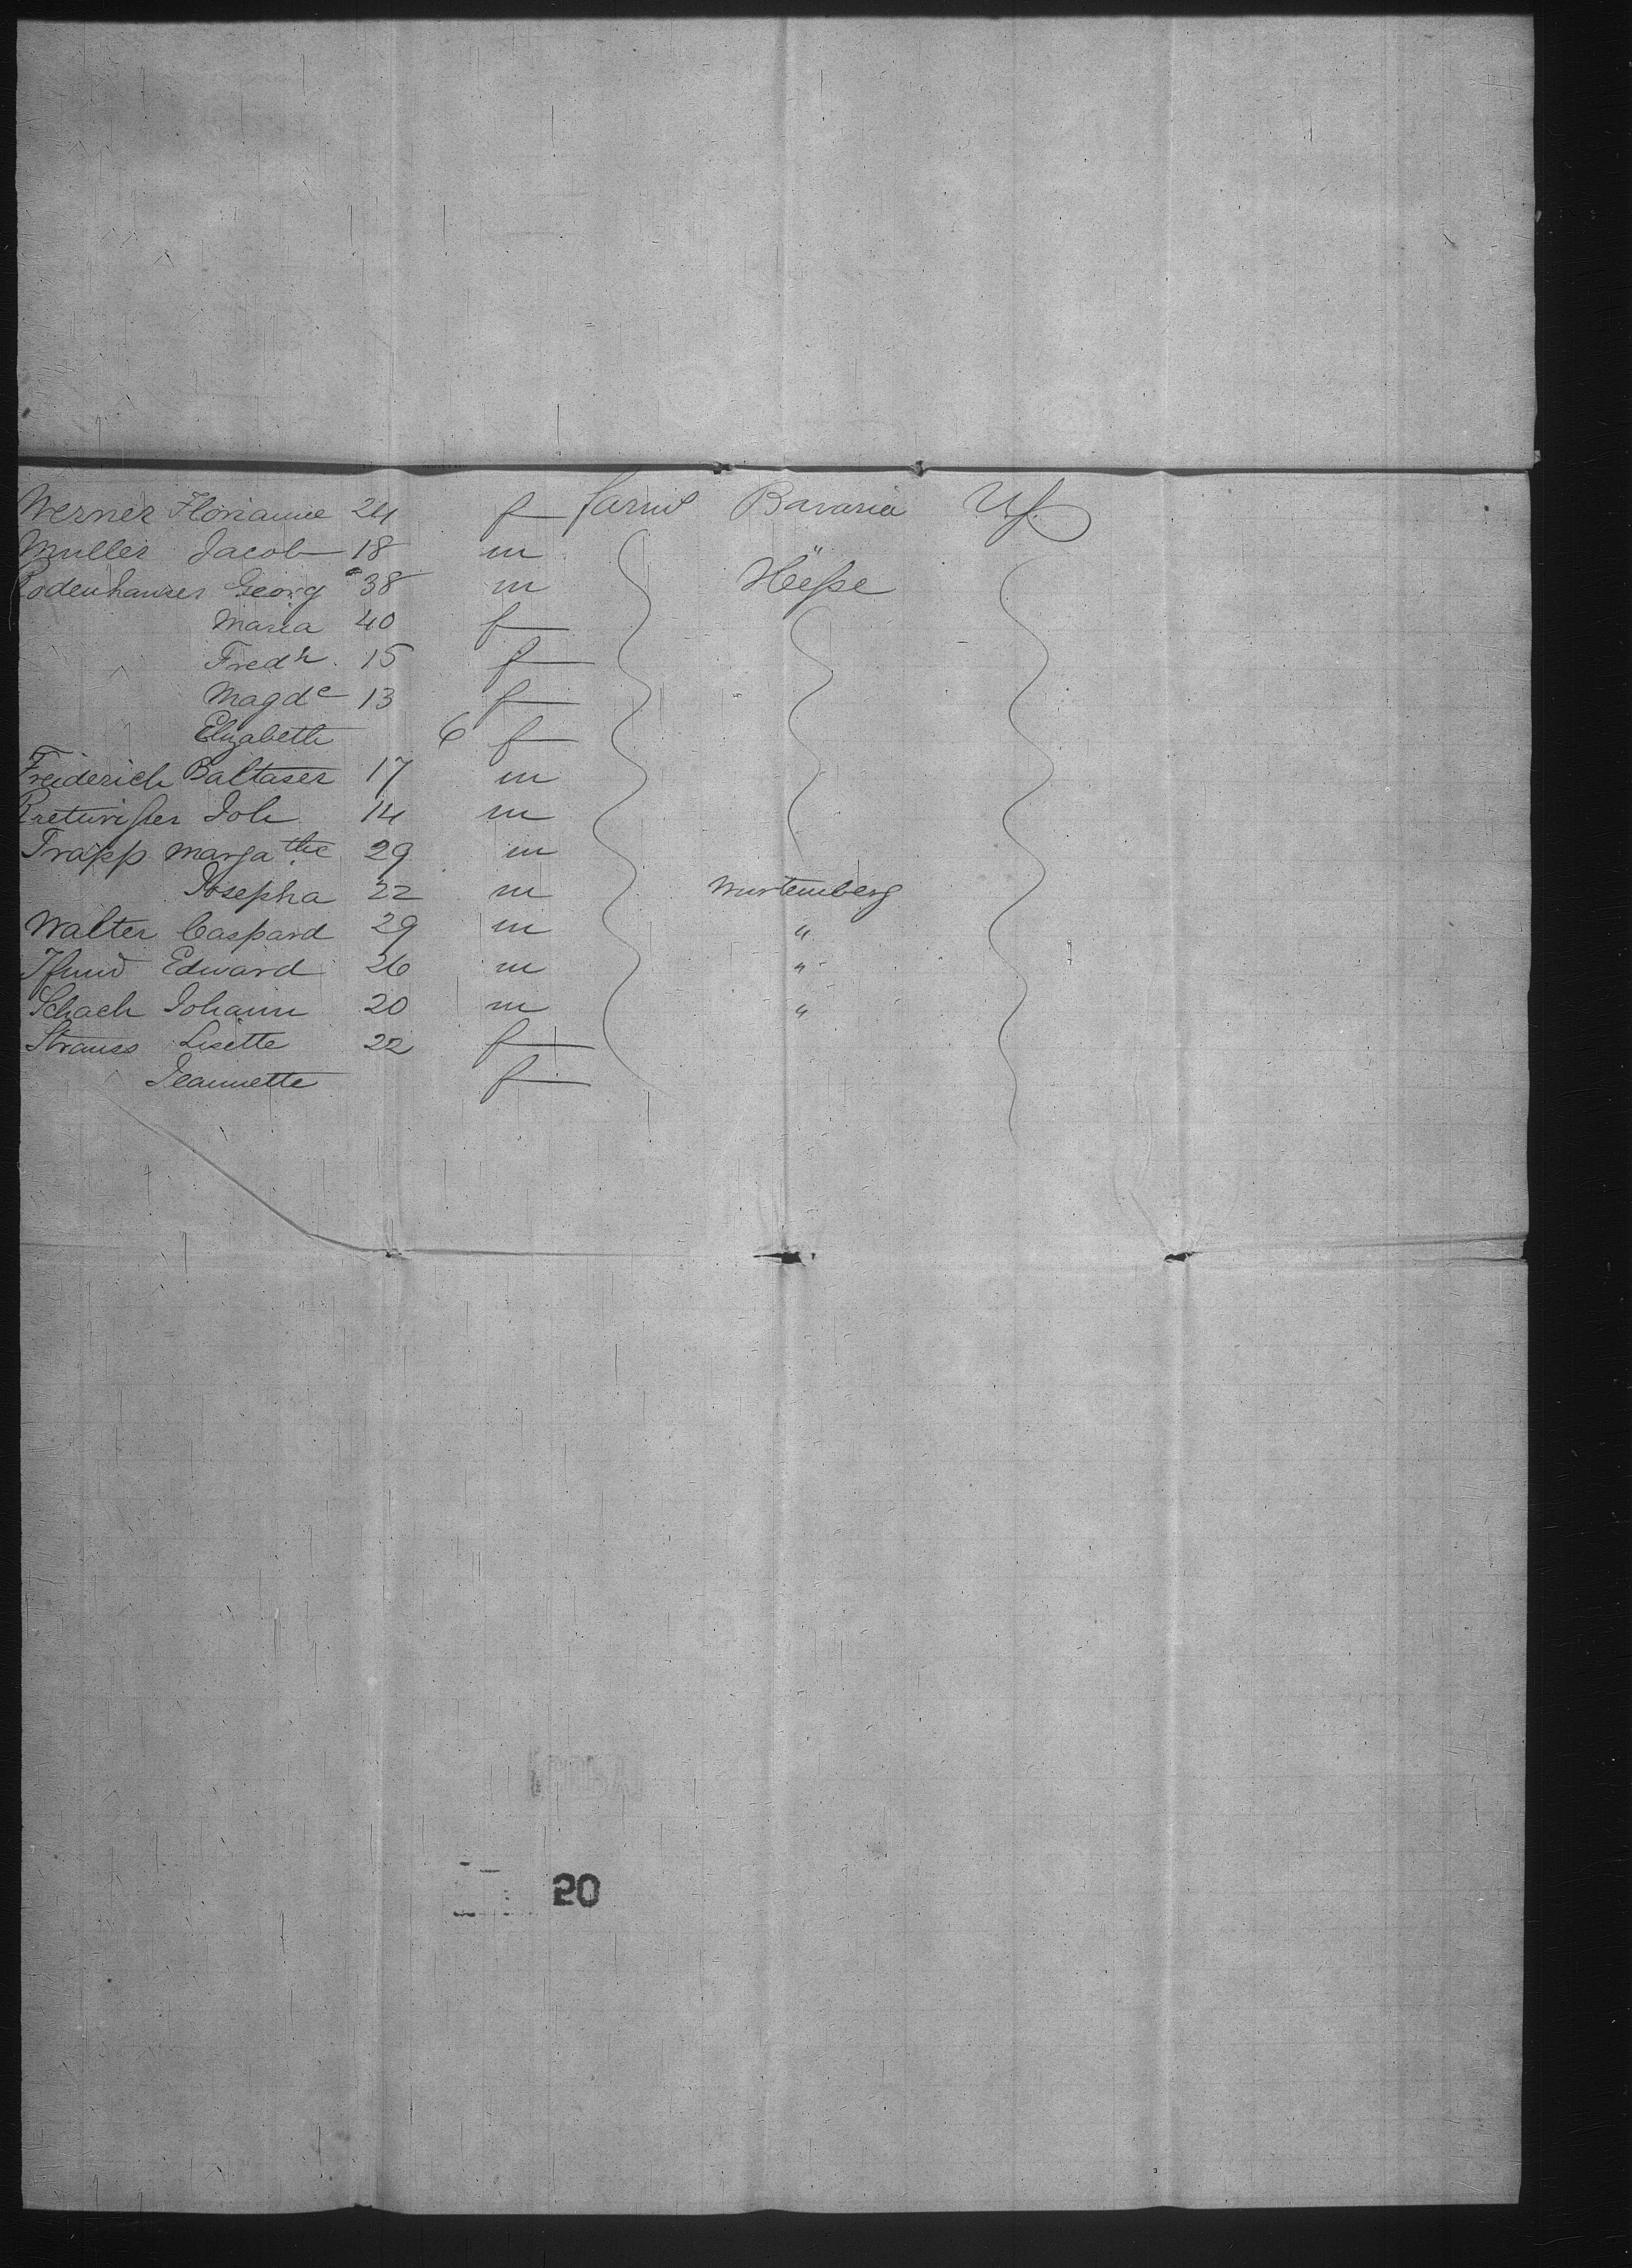 Werner Florianne 24 f farms Bavaria US
Muller Jacob 18 m "
Rodenhauser Georg 38 m Hesse
Maria 40 f
Fredk 15 f
Magde 13 f
Elizabeth 6 f
Freiderich Baltaser 17 m
Joh 14 m
Trapp Margathe 29 m
Josepha 22 m Wurtemberg
Walter Caspard 29 m "
Edward 26 m "
Schach Johann 20 m "
Strauss Lisette 22 f
Jeannette f
20